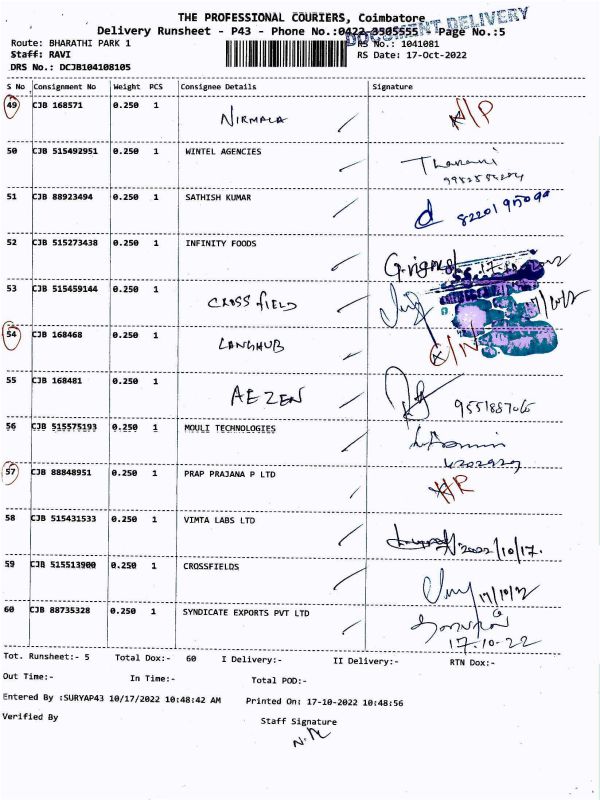 THE PROFESSIONAL COURIERS, Coimbatore
Delivery Runsheet - P43 - Phone No.:0422 3305555 Page No.:5
DOCUMENT DELIVERY
Route: BHARATHI PARK 1 RS No.: 1041081
Staff: RAVI RS Date: 17-Oct-2022
DRS No.: DCJB104108105
S No Consignment No Weight PCS Consignee Details Signature
49 CJB 168571 0.250 1 NIRMALA N/P
50 CJB 515492951 0.250 1 WINTEL AGENCIES
51 CJB 88923494 0.250 1 SATHISH KUMAR
52 CJB 515273438 0.250 1 INFINITY FOODS
53 CJB 515459144 0.250 1 CROSSFIELD
54 CJB 168468 0.250 1 LANGHUB C/N
55 CJB 168481 0.250 1 AEZEN
56 CJB 515575193 0.250 1 MOULI TECHNOLOGIES
57 CJB 88848951 0.250 1 PRAP PRAJANA P LTD
58 CJB 515431533 0.250 1 VIMTA LABS LTD 2022/10/17.
59 CJB 515513900 0.250 1 CROSSFIELDS 17/10/22
60 CJB 88735328 0.250 1 SYNDICATE EXPORTS PVT LTD
17-10-22
Tot. Runsheet:- 5 Total Dox:- 60 I Delivery:- II Delivery:- RTN Dox:-
Out Time:- In Time:- Total POD:-
Entered By :SURYAP43 10/17/2022 10:48:42 AM Printed On: 17-10-2022 10:48:56
Verified By Staff Signature